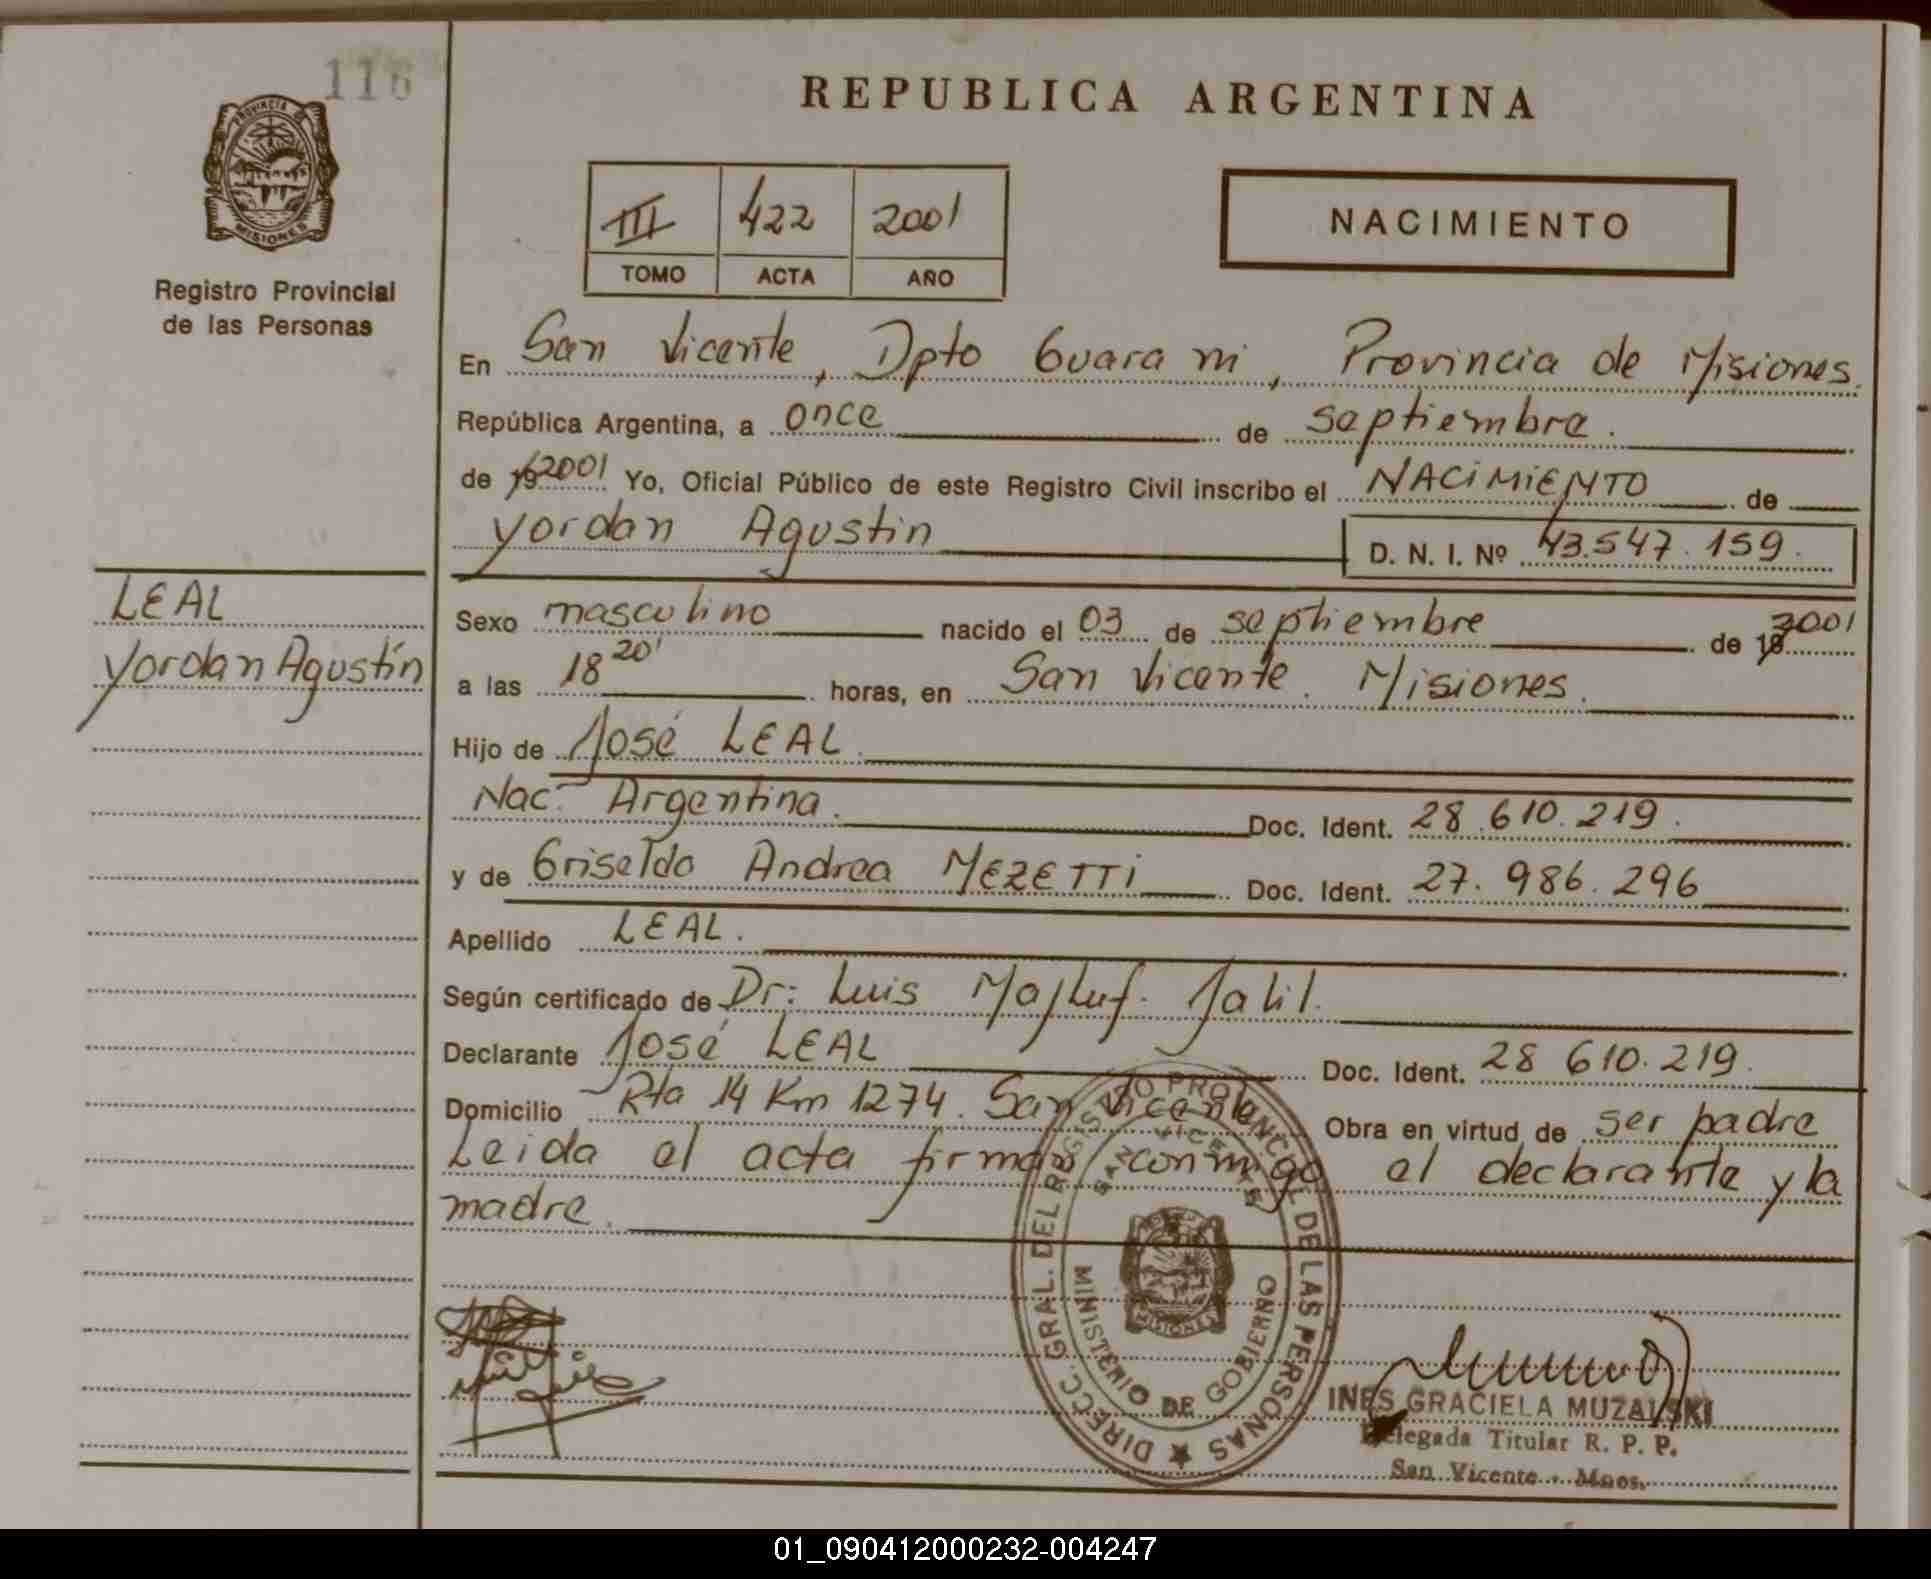 116
REPUBLICA ARGENTINA
PROVINCIA DE
MISIONES
Registro Provincial
de las Personas
III 422 2001
TOMO ACTA AÑO
NACIMIENTO
En San Vicente, Dpto Guarani, Provincia de Misiones.
República Argentina, a once de septiembre.
de 19 2001 Yo, Oficial Público de este Registro Civil inscribo el NACIMIENTO de
Yordan Agustin D. N. I. Nº 43.547.159.
LEAL
Yordan Agustín
Sexo masculino nacido el 03 de septiembre de 19 2001
a las 18 20' horas, en San Vicente. Misiones.
Hijo de José LEAL.
Nac. Argentina. Doc. Ident. 28.610.219.
y de Griselda Andrea MEZETTI Doc. Ident. 27.986.296
Apellido LEAL.
Según certificado de Dr: Luis Majluf. Jalil.
Declarante José LEAL Doc. Ident. 28 610.219.
Domicilio Rta 14 Km 1274. San Vicente Obra en virtud de ser padre
Leida el acta firman conmigo el declarante y la
madre.
DIRECC. GRAL. DEL REGISTRO PROVINCIAL DE LAS PERSONAS
SAN VICENTE
MISIONES
MINISTERIO DE GOBIERNO
INES GRACIELA MUZALSKI
Delegada Titular R. P. P.
San Vicente - Mnes.
01_090412000232-004247